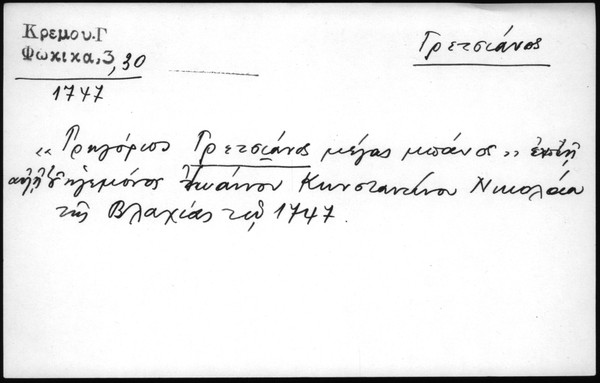 Κρεμου.Γ
Φωκικα,3,30
1747
Γρετσιάνος
"Γρηγόριος Γρετσιάνος μέγας μπάνος"
ἡγεμόνος Ἰωάννου Κωνσταντίνου Νικολάου
τῆς Βλαχίας τῷ 1747.